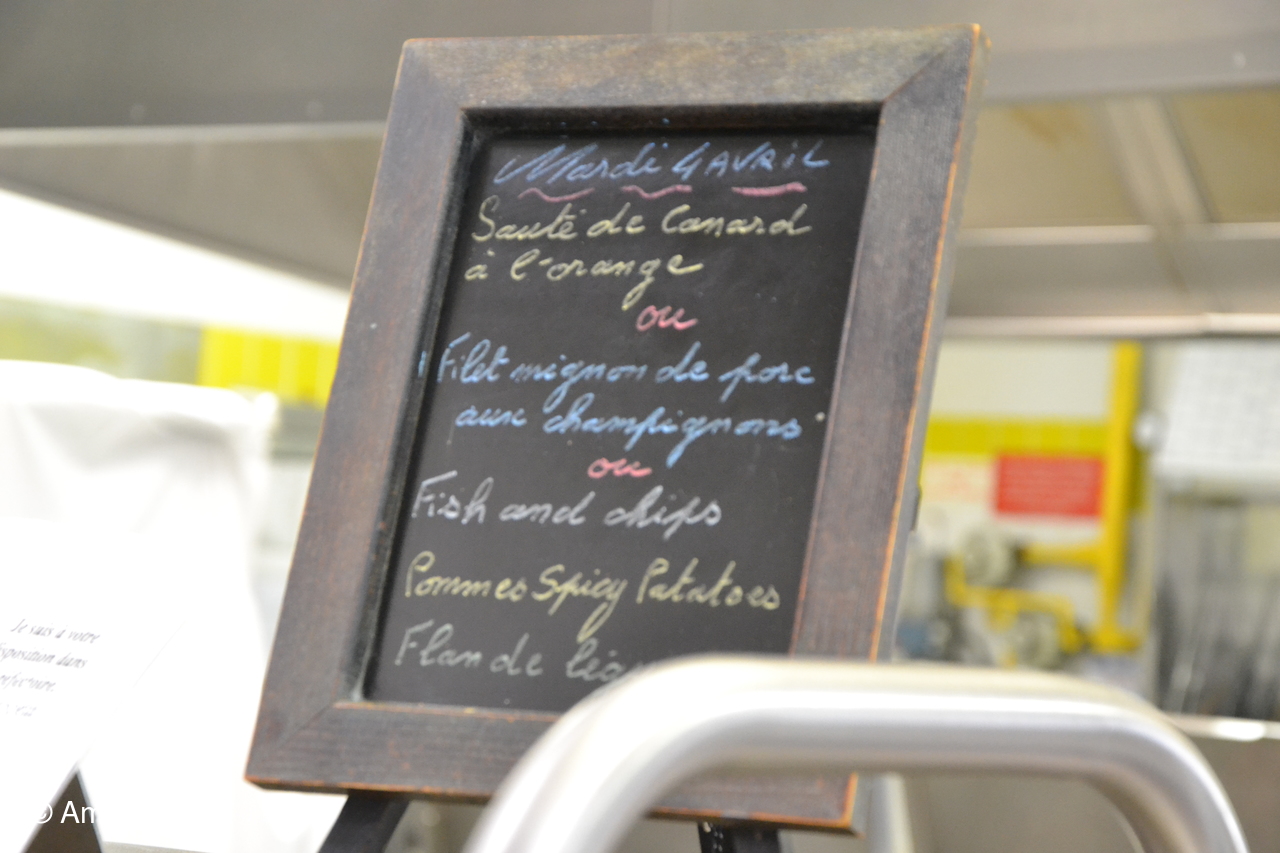 Mardi 4 AVRiL
Sauté de Canard
à l'orange
ou
Filet mignon de porc
aux champignons
ou
Fish and chips
Pommes Spicy Patatoes
Flan de
Je suis à votre
disposition dans
©